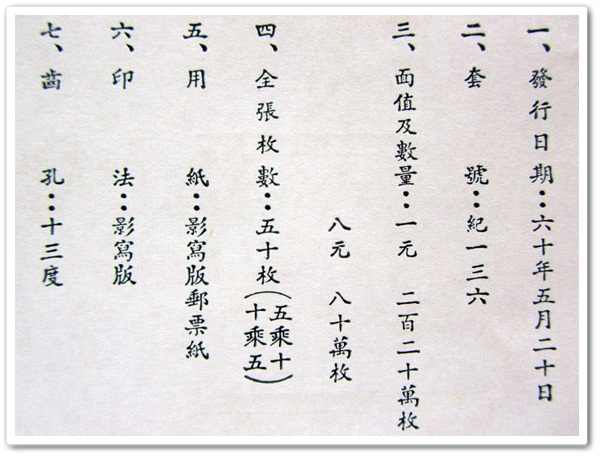 一、發行日期：六十年五月二十日
二、套號：紀一三六
三、面值及數量：一元 二百二十萬枚
八元 八十萬枚
四、全張枚數：五十枚（五乘十 十乘五）
五、用紙：影寫版郵票紙
六、印法：影寫版
七、齒孔：十三度